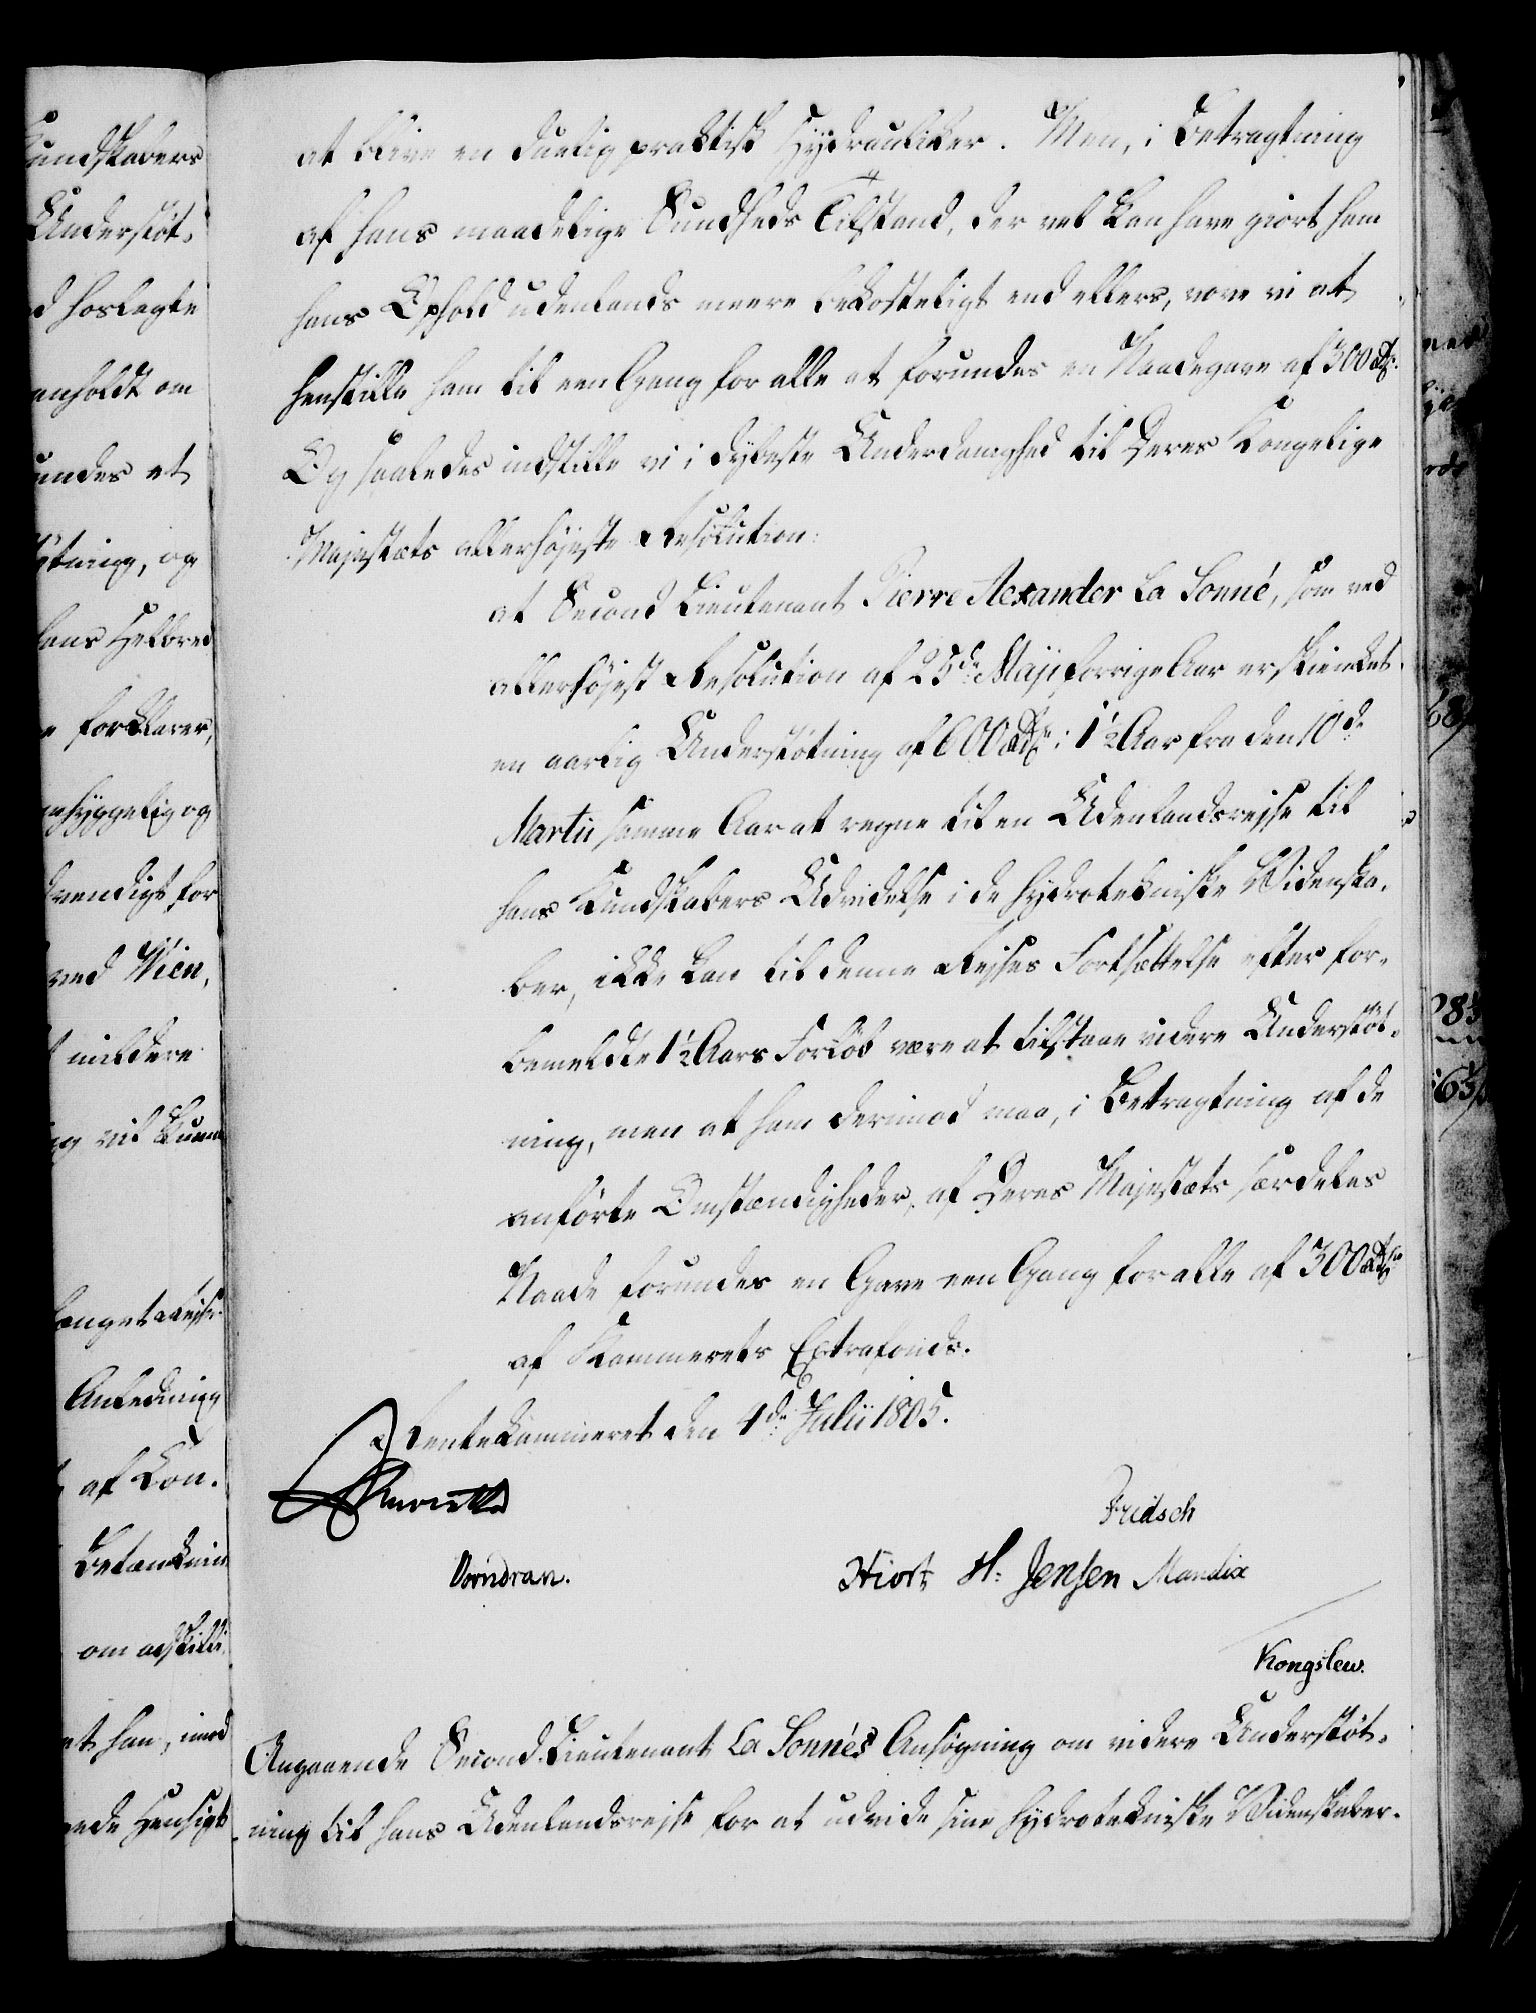 at blive en duelig praktisk Hydrauliker. Men, i Betragtning
af hans maadelige Sundheds Tilstand, der vel kan have giort ham
hans Ophold udenlands meere bekosteligt end ellers, vove vi at
henstille ham til een Gang for alle at forundes en Naadegave af 300 Rdr.
Og saaledes indstille vi i dybeste Underdanighed til Deres Kongelige
Majestæts allerhøjeste Resolution:
at Second Lieutenant Pierre Alexander La Sonné, som ved
allerhøjest Resolution af 25de Maji forrige Aar er skienket
en aarlig Understøtning af 600 Rdr i 1½ Aar fra den 10de
Martii samme Aar at regne til en Udenlandsrejse til
hans Kundskabers Udvidelse i de hydrotekniske Videnska-
ber, ikke kan til denne Rejses Fortsættelse efter for-
bemeldte 1½ Aars Forløb være at tilstaae videre Understøt-
ning, men at ham derimod maa, i Betragtning af de
anførte Omstændigheder, af Deres Majestæts særdeles
Naade forundes en Gave een Gang for alle af 300 Rdr
af Kammerets Extrafonds.
Rentekammeret den 4de Julii 1805.
Fridsch
Vorndran. Hiort H. Jensen Mandix
Kongslew.
Angaaende Second-Lieutenant La Sonnés Ansøgning om videre Understøt-
ning til hans Udenlandsrejse for at udvide sine hydrotekniske Videnskaber.
Kundskabers
Understøt-
d hoslagte
anholdt om
undes et
øtning, og
hans Helbred
e forklarer,
ehyggelig og
dvendigt for
ved Wien,
mildere
og vil kunne
Anledning
af Kon-
Betænkning
at han, imod
ede Hensigt